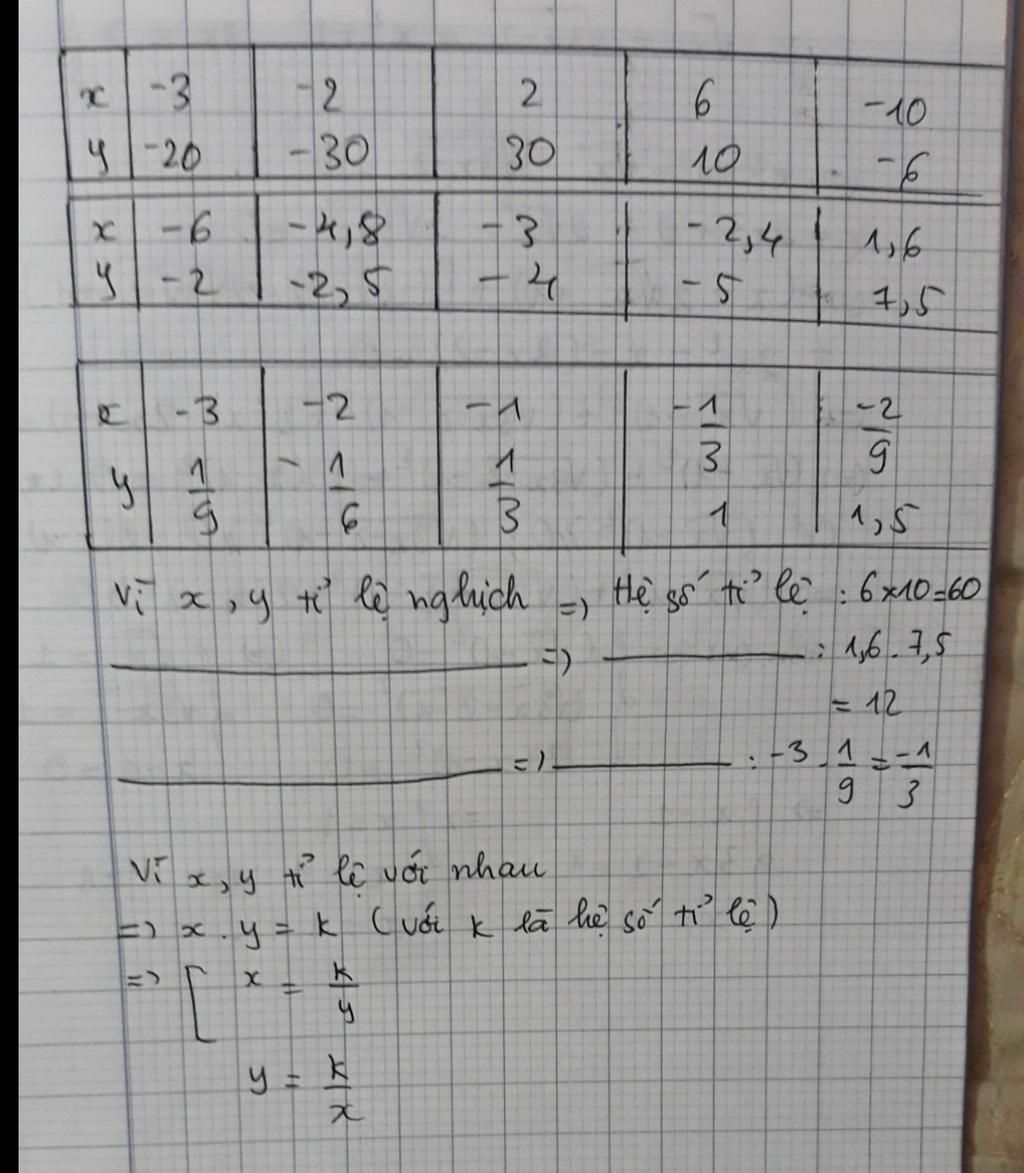 x -3 -2 2 6 -10
y -20 -30 30 10 -6
x -6 -4,8 -3 -2,4 1,6
y -2 -2,5 -4 -5 7,5
x -3 -2 -1 -1/3 -2/9
y 1/9 -1/6 1/3 1 1,5
Vì x, y tỉ lệ nghịch => Hệ số tỉ lệ : 6x10=60
=> : 1,6 . 7,5
= 12
=> : -3 . 1/9 = -1/3
Vì x, y tỉ lệ với nhau
=> x . y = k (với k là hệ số tỉ lệ)
=> [ x = k/y
y = k/x